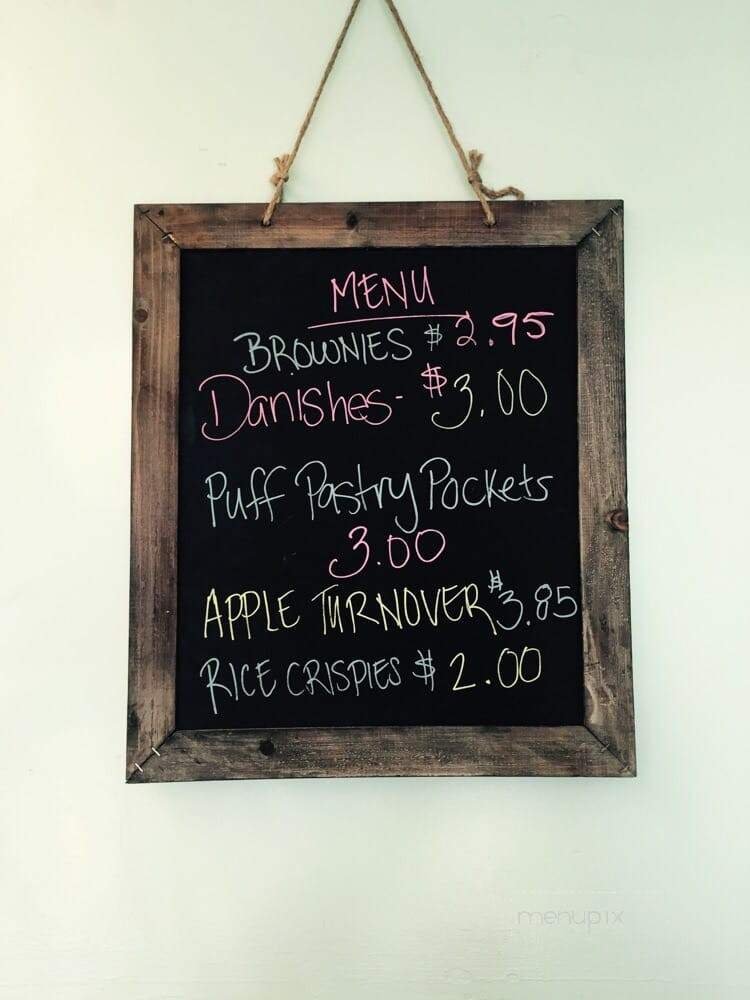 MENU
BROWNIES $2.95
Danishes- $3.00
Puff Pastry Pockets
3.00
APPLE TURNOVER $3.85
RICE CRISPIES $2.00
menupix